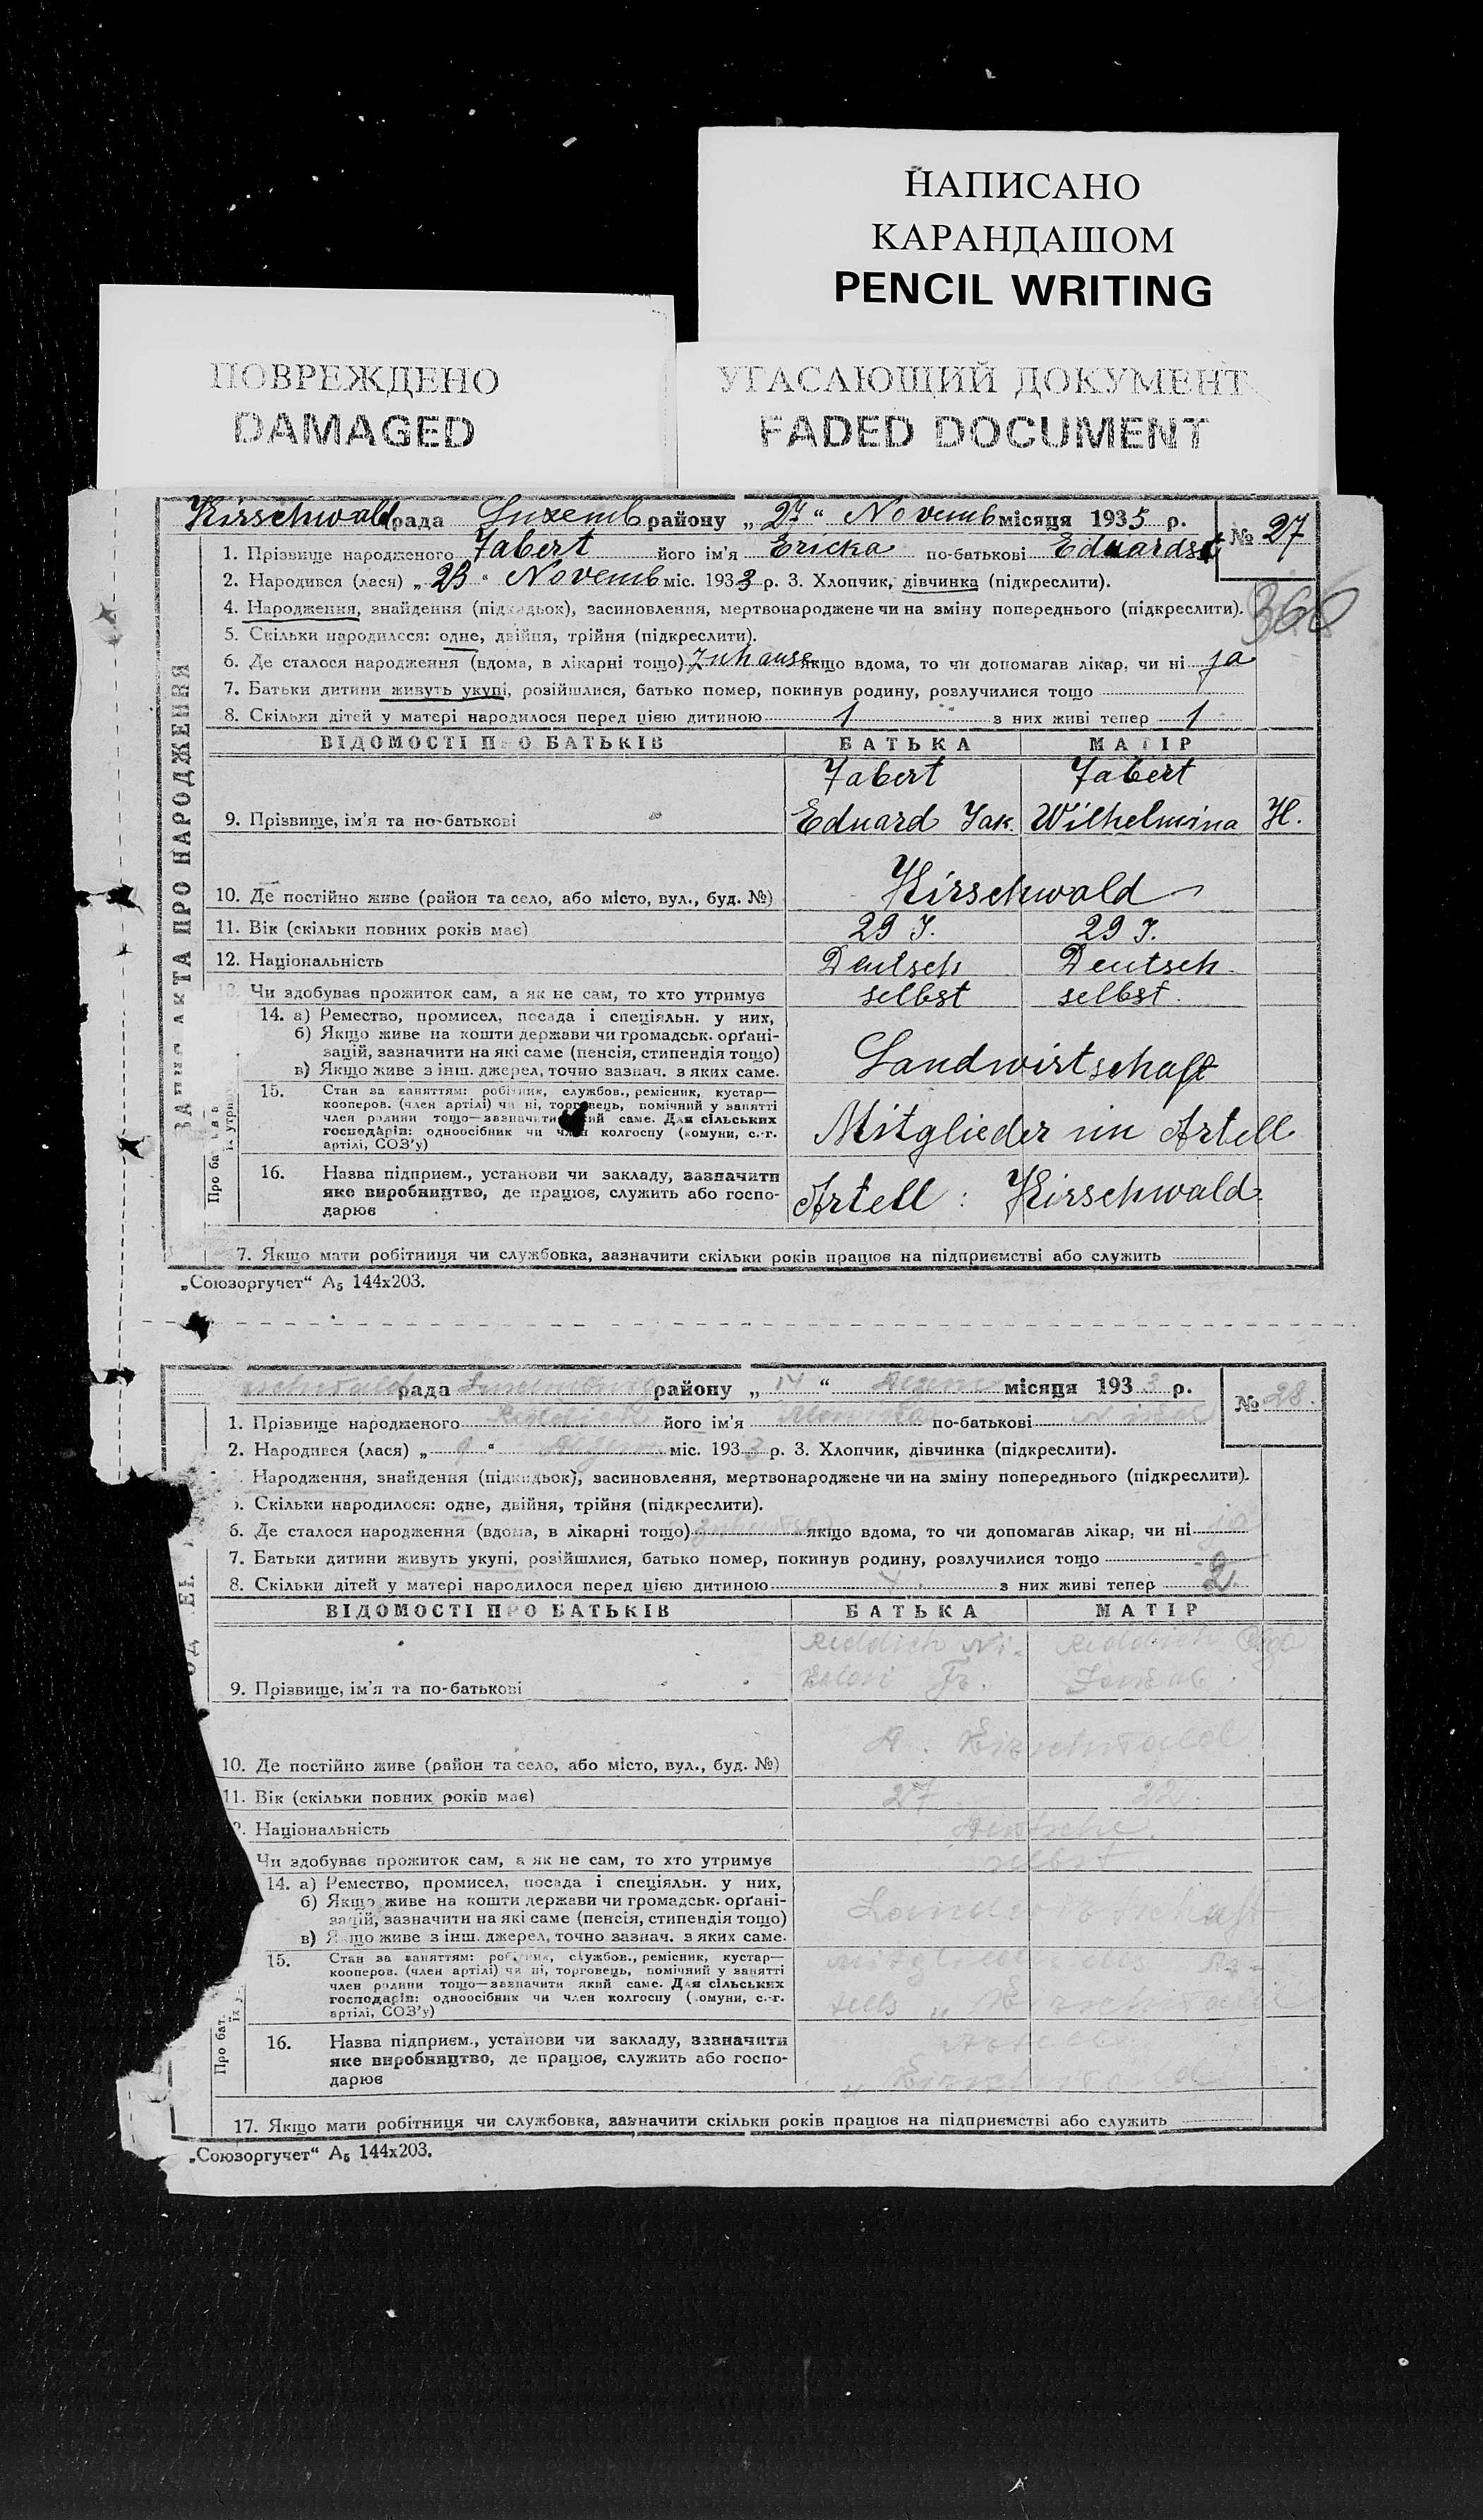 НАПИСАНО
КАРАНДАШОМ
PENCIL WRITING
ПОВРЕЖДЕНО
DAMAGED
УГАСАЮЩИЙ ДОКУМЕНТ
FADED DOCUMENT
ЗАПИС АКТА ПРО НАРОДЖЕННЯ
Kirschwald рада Luxemb району „27“ Novemb місяця 1935 р. № 27
1. Прізвище народженого Fabert його ім'я Ericka по-батькові
2. Народився (лася) „23“ Novemb міс. 1933 р. 3. Хлопчик, дівчинка (підкреслити).
366
4. Народження, знайдення (підкидьок), засиновлення, мертвонароджене чи на зміну попереднього (підкреслити).
5. Скільки народилося: одне, двійня, трійня (підкреслити).
6. Де сталося народження (вдома, в лікарні тощо) Zuhause якщо вдома, то чи допомагав лікар, чи ні ja
7. Батьки дитини живуть укупі, розійшлися, батько помер, покинув родину, розлучилися тощо
8. Скільки дітей у матері народилося перед цією дитиною 1 з них живі тепер 1
ВІДОМОСТІ ПРО БАТЬКІВ БАТЬКА МАТІР
Fabert Fabert
9. Прізвище, ім'я та по-батькові Eduard Jak. Wilhelmina H.
10. Де постійно живе (район та село, або місто, вул., буд. №) Kirschwald
11. Вік (скільки повних років має) 29 J. 29 J.
12. Національність Deutsch Deutsch
Чи здобуває прожиток сам, а як не сам, то хто утримує selbst selbst.
14. а) Ремество, промисел, посада і спеціяльн. у них,
б) Якщо живе на кошти держави чи громадськ. орґані-
зацій, зазначити на які саме (пенсія, стипендія тощо)
в) Якщо живе з інш. джерел, точно зазнач. з яких саме.
Landwirtschaft
15. Стан за заняттям: робітник, службов., ремісник, кустар—
кооперов. (член артілі) чи ні, торговець, помічний у занятті
член родини тощо—зазначити який саме. Для сільських
господарів: одноосібник чи член колгоспу (комуни, с.-г.
артілі, СОЗ'у)
Mitglieder im Artell
16. Назва підприєм., установи чи закладу, зазначити
яке виробництво, де працює, служить або госпо-
дарює
Artell: Kirschwald.
7. Якщо мати робітниця чи службовка, зазначити скільки років працює на підприємстві або служить
„Союзоргучет“ А5 144х203.
рада району „14“ місяця 1933 р. № 28.
1. Прізвище народженого його ім'я по-батькові
2. Народився (лася) „9“ міс. 1933 р. 3. Хлопчик, дівчинка (підкреслити).
Народження, знайдення (підкидьок), засиновлення, мертвонароджене чи на зміну попереднього (підкреслити).
5. Скільки народилося: одне, двійня, трійня (підкреслити).
6. Де сталося народження (вдома, в лікарні тощо) zuhause якщо вдома, то чи допомагав лікар, чи ні ja
7. Батьки дитини живуть укупі, розійшлися, батько помер, покинув родину, розлучилися тощо
8. Скільки дітей у матері народилося перед цією дитиною з них живі тепер 2
ВІДОМОСТІ ПРО БАТЬКІВ БАТЬКА МАТІР
Reddich Ni- Reddich Olga
9. Прізвище, ім'я та по-батькові kolai Fr.
10. Де постійно живе (район та село, або місто, вул., буд. №) A. Kirschwald
11. Вік (скільки повних років має) 27 22
Національність Deutsche.
Чи здобуває прожиток сам, а як не сам, то хто утримує selbst
14. а) Ремество, промисел, посада і спеціяльн. у них,
б) Якщо живе на кошти держави чи громадськ. орґані-
зацій, зазначити на які саме (пенсія, стипендія тощо)
в) Якщо живе з інш. джерел, точно зазнач. з яких саме.
Landwirtschaft
15. Стан за заняттям: робітник, службов., ремісник, кустар—
кооперов. (член артілі) чи ні, торговець, помічний у занятті
член родини тощо—зазначити який саме. Для сільських
господарів: одноосібник чи член колгоспу (комуни, с.-г.
артілі, СОЗ'у)
Mitglied des Ar-
tells „Kirschwald
16. Назва підприєм., установи чи закладу, зазначити
яке виробництво, де працює, служить або госпо-
дарює
Artell
„Kirschwald
17. Якщо мати робітниця чи службовка, зазначити скільки років працює на підприємстві або служить
„Союзоргучет“ А5 144х203.